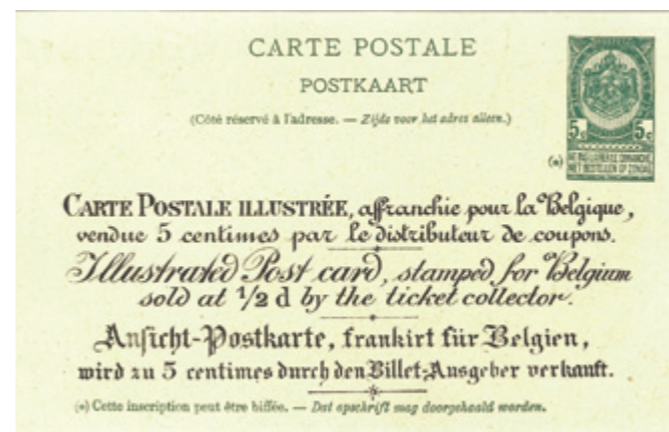 CARTE POSTALE
POSTKAART
(Côté réservé à l'adresse. — Zijde voor het adres alleen.)
5c 5c
NE PAS LIVRER LE DIMANCHE
NIET BESTELLEN OP ZONDAG
(*)
CARTE POSTALE ILLUSTRÉE, affranchie pour la Belgique,
vendue 5 centimes par le distributeur de coupons.
Illustrated Post card, stamped for Belgium
sold at ½ d by the ticket collector.
Ansicht-Postkarte, frankirt für Belgien,
wird zu 5 centimes durch den Billet-Ausgeber verkauft.
(*) Cette inscription peut être biffée. — Dat opschrift mag doorgehaald worden.